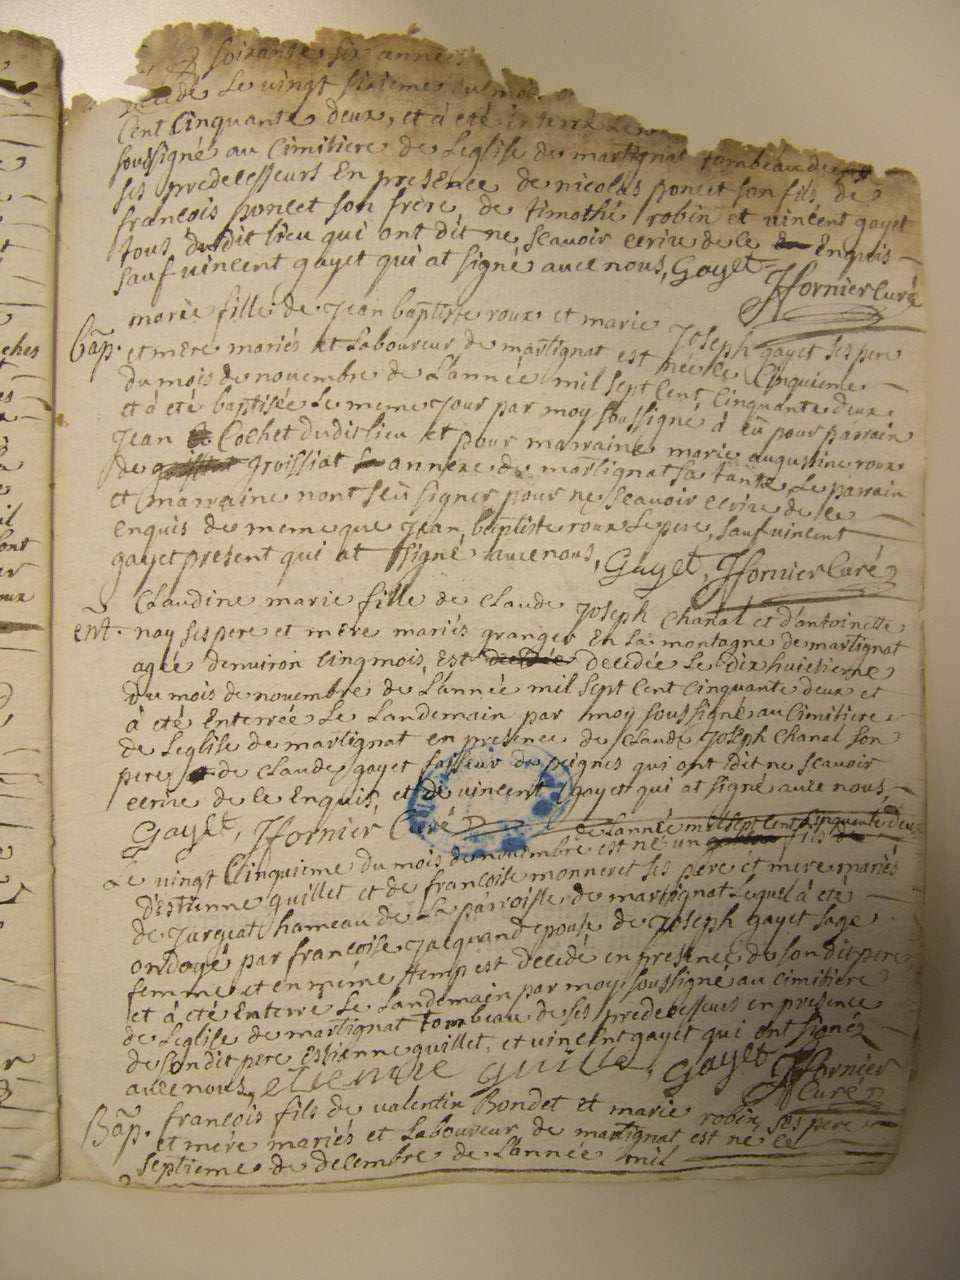 soixante six années
decedé Le vingt sixieme du mois
Cent Cinquante deux, et à été interré Le
soussigné au Cimitiere de Leglise de martignat tombeau de
ses predecesseurs En presence de nicolas poncet son fils de
francois poncet son frère, de timothé robin et vincent gayet
tous dudit lieu qui ont dit ne scavoir ecrire de ce Enquis
sauf vincent gayet qui at signé avec nous, Gayet
JJfornier Curé
marie fille de Jean baptiste roux et marie Joseph gayet ses pere
Bap. et mère mariés et Laboureur de martignat est née le Cinquieme
du mois de novembre de L'année mil sept cent Cinquante deux
et à été baptisée Le meme Jour par moy soussigné à eû pour parrain
Jean Cochet dudit lieu et pour marraine marie augustine roux
de groissiat annexe de martignat sa tante, Le parrain
et marraine nont seû signer pour ne scavoir ecrire de ce
enquis de meme que Jean baptiste roux Le pere, sauf vincent
gayet present qui at signé avec nous, Gayet, JJfornier Curé
Claudine marie fille de Claude Joseph Chanal et d'antoinette
ent. nay ses pere et mère mariés granger En La montagne de martignat
agée denviron Cinq mois, est decedée Le dix huictieme
du mois de novembre de L'année mil sept cent cinquante deux et
à été Enterrée Le Landemain par moy soussigné au Cimitiere
de Leglise de martignat en presence de Claude Joseph Chanal son
pere, de Claude gayet faiseur de peignes qui ont dit ne scavoir
ecrire de ce Enquis, et de vincent gayet qui at signé avec nous
Gayet, JJfornier Curé
de L'année mil sept cent Cinquante deux
Le vingt Cinquieme du mois de novembre est né un fils
d'estienne quillet et de francoise monneret ses pere et mere mariés
de Jurgeat hameau de La parroisse de martignat Lequel à été
ondoyé par francoise Jacquand epouse de Joseph gayet sage
femme et en même temp est decedé en presence de son dit pere
et à été Enterré Le Landemain par moy soussigné au cimitiere
de Leglise de martignat tombeau de ses predecesseurs en presence
de son dit pere Estienne quillet, et vincent gayet qui ont signéz
avec nous, etienne quille, gayet JJfornier
Curé
Bap. francois fils de valentin Bondet et marie robin, ses pere
et mère mariés et Laboureur de martignat est né le
septieme de decembre de L'année mil